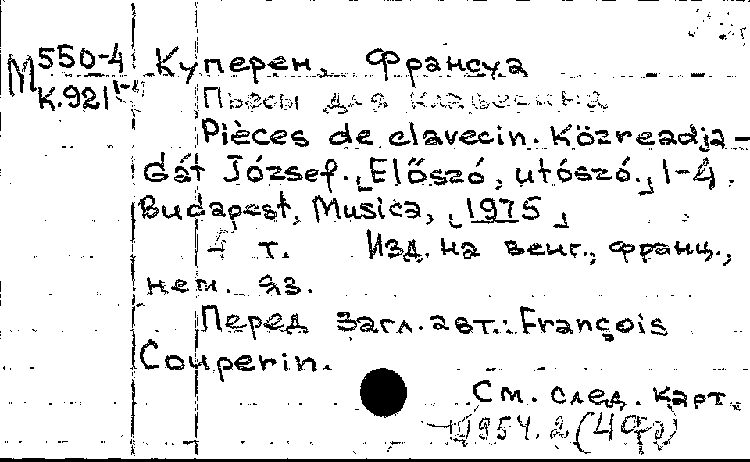 М 550-4 Куперен, Франсуа
К.921 Пьесы для клавесина
Pièces de clavecin. Közreadja-
Gát József. [Előszó, utószó.] 1-4.
Budapest, Musica, [1975]
4 т. Изд. на венг., франц.,
нем. яз.
Перед загл. авт.: François
Couperin.
См. след. карт.